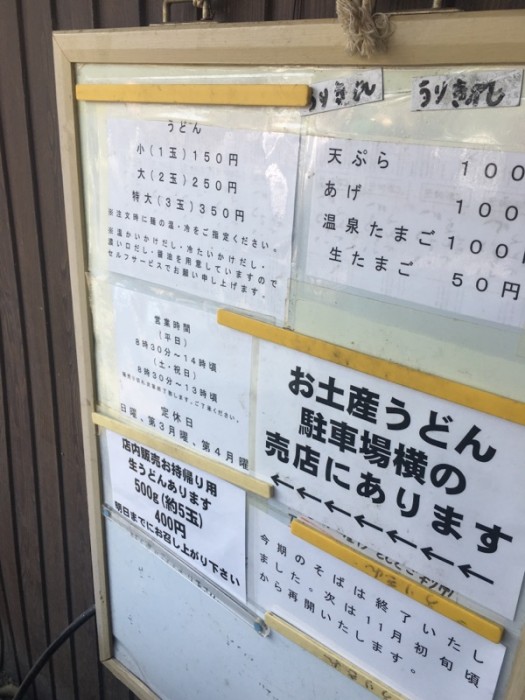 うりきれ
うりきれ
うどん
小(1玉)150円
大(2玉)250円
特大(3玉)350円
※注文時に麺の温・冷をご指定ください。
※温かいかけだし・冷たいかけだし・
濃い口だし・醤油を用意していますので
セルフサービスでお願い申し上げます。
天ぷら 100
あげ 100
温泉たまご 100
生たまご 50円
営業時間
(平日)
8時30分〜14時頃
(土・祝日)
8時30分〜13時頃
定休日
日曜、第3月曜、第4月曜
お土産うどん
駐車場横の
売店にあります
←←←←←←←
店内販売お持帰り用
生うどんあります
500g(約5玉)
400円
明日までにお召し上がり下さい
今期のそばは終了いたし
ました。次は11月初旬頃
から再開いたします。